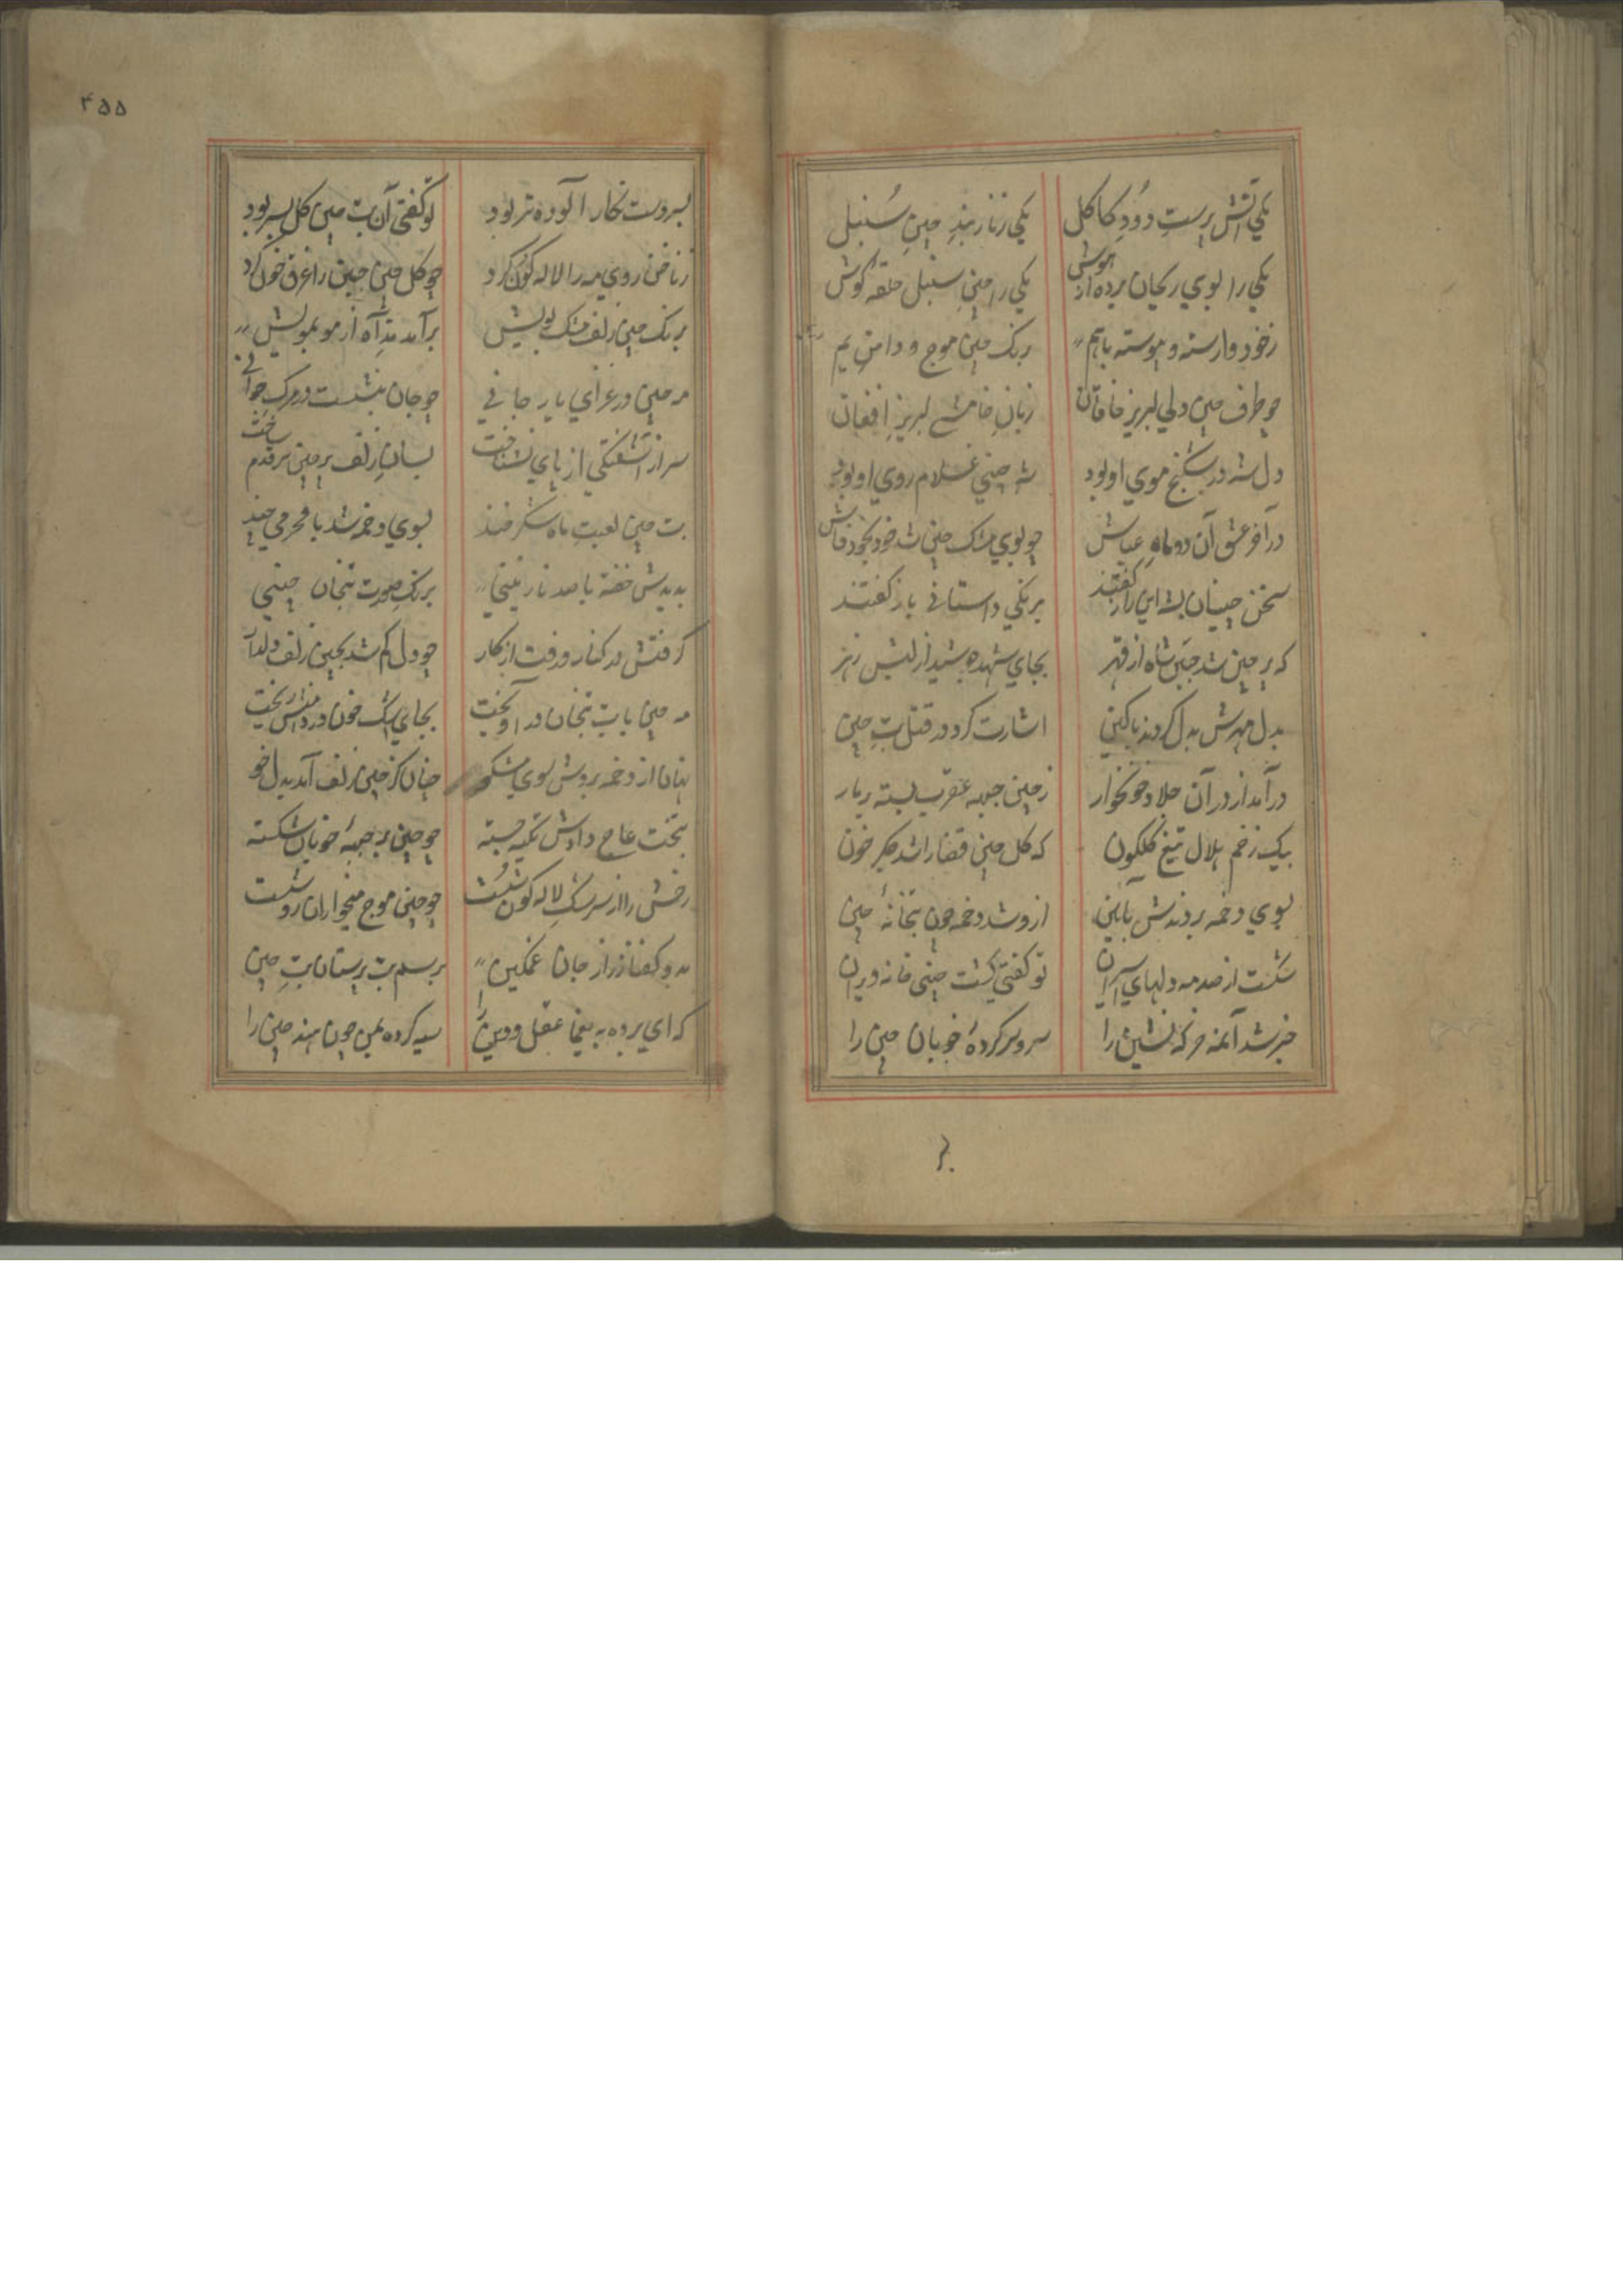 یکی آتش پرستِ دودِ کاکل
یکی زنار بندِ چینِ سُنبل
یکی را بوی ریحان برده از هوش
یکی را چینِ سنبل حلقه گوش
زخود وارسته و پیوسته باهم
برنک چین موج و دامن یم
چو ظرف چین ولی لبریز خاقان
زبانِ خامشی لبریز افغان
دل شه در شکنج موی او بود
شه چینی غلام روی او بود
در آخر عشق آن دو ماه
چو بوی مشک چین شد خود بخود فاش
سخن چینان بشه این راز گفتند
برنکی داستانی باز گفتند
که پر چین شد جبین شاه از قهر
بجای شهد جوشید از لبش زهر
بدل مهرش بدل کردند با کین
اشارت کرد در قتل بتِ چین
درآمد از در آن جلاد خونخوار
زچین جبهه عقرب بسته
بیک زخم هلال تیغ کلکون
که کل چین قضا را شد جکر خون
بسوی دخمه بردندش ببالین
ازو شد دخمه چون بتخانهٔ چین
شکست از صدمه دلهای اسیران
تو کفتی کشت چینی خانه ویران
خبر شد آن مه خرکه نشین را
سر و سرکردهٔ خوبان چین را
بر
۴۵۵
بسر دست نکار آلوده تر بود
تو کفتی آن بت چین کل بسر بود
زناخن روی مه را لاله کون کرد
چو کل چین جبین را غرق خون کرد
برنک چین زلف مشک بویش
برآمد مد آه از مو بمویش
مه چین در عزای یار جانی
چو جان بنشست در مرک جوانی
سر از آشفتکی از پای نشناخت
بسان زلف پر چین ترقدم ساخت
بت چین لعبت ماه شکرخند
بسوی دخمه شد با محرمی چند
بدیدش خفته با صد نازنینی
برنک صورت بیجان چینی
کرفتش در کنار و رفت از کار
چو دل کم شد بچین زلف دلدار
مه چین با بت بیجان درآویخت
بجای اشک خون در دامنش ریخت
نهان از دخمه بردش سوی مشکو
چنان کز چین زلف آید بدل خو
بتخت عاج دادش تکیه جسته
چو چین بر جبههٔ خوبان شکسته
رخش را از سرشک لاله کون شست
چو چینی موج میخواران رو شست
بدو کفتا زراز جان غمکین
برسم بت پرستان بتِ چین
که ای برده به یغما عقل و دین را
سیه کرده بمن چون هند چین را